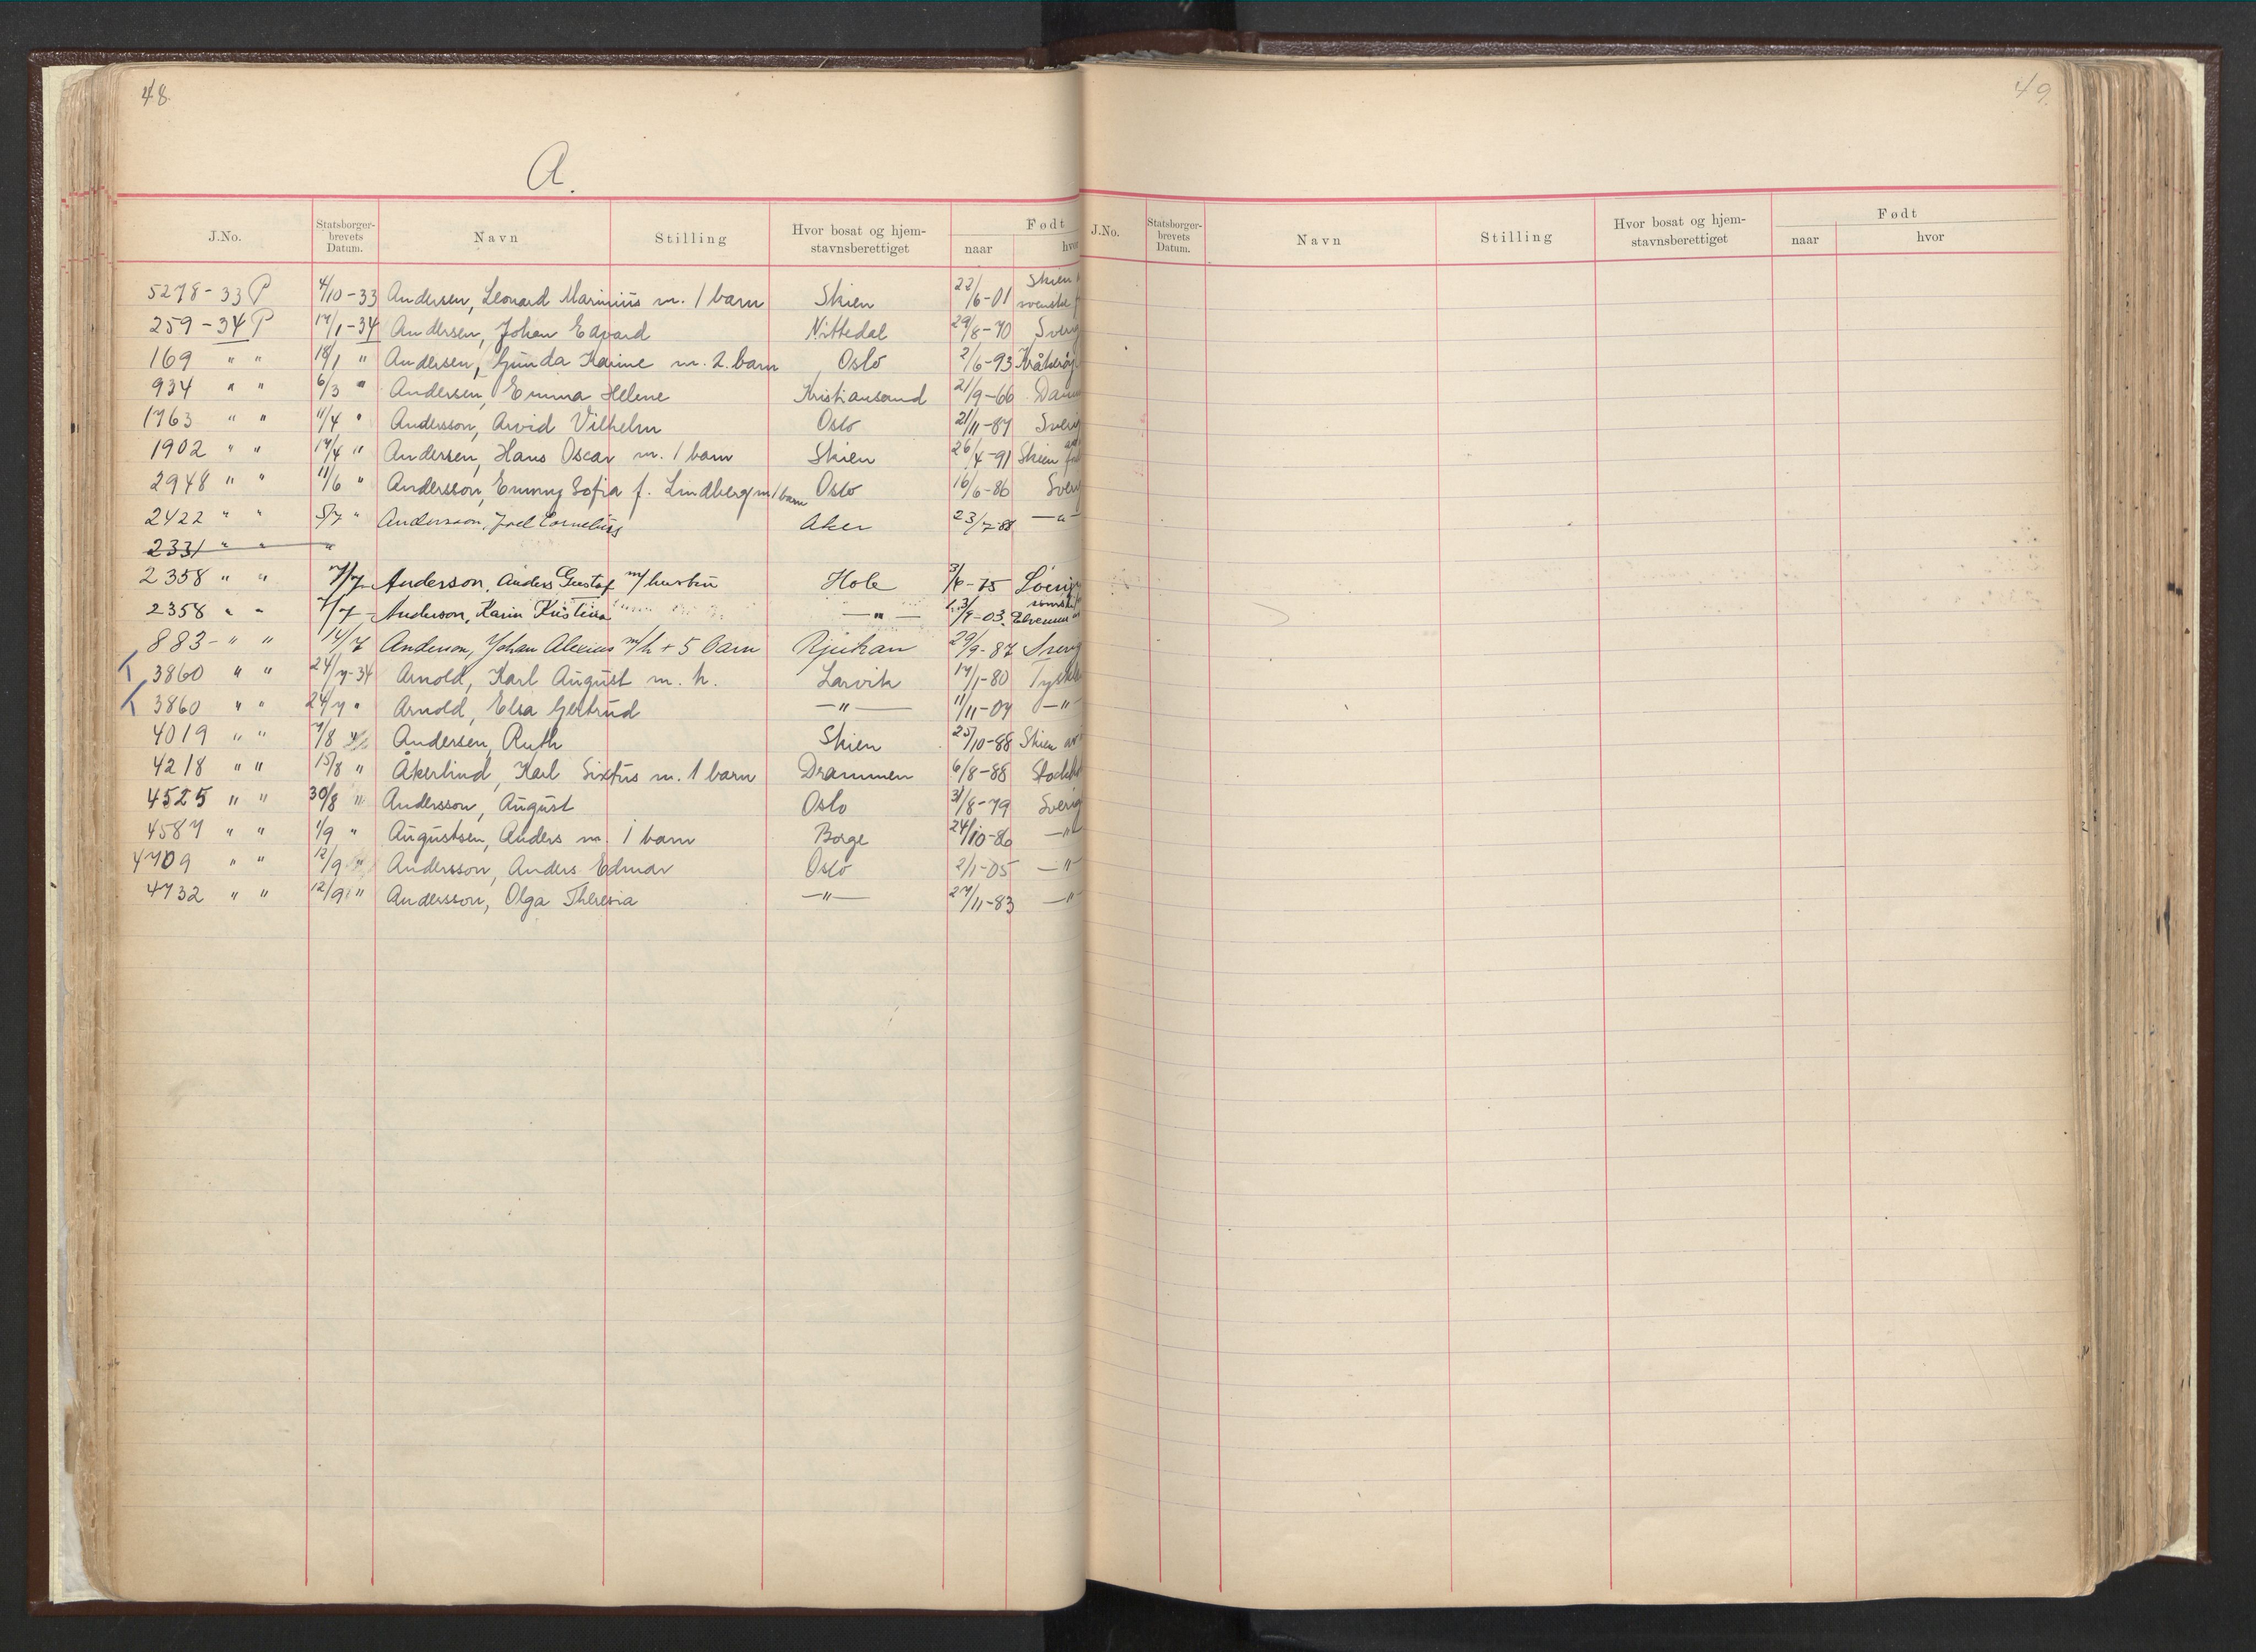 48.
A.
J.No. Statsborger-brevets Datum. Navn Stilling Hvor bosat og hjem-stavnsberettiget Født naar hvor
5278-33 P 4/10-33 Andersen, Leonard Marinius m. 1 barn Skien 22/6-01 Skien svenske
259-34 P 17/1-34 Andersen, Johan Edvard Nittedal 29/8-70 Sverig
169 " " 18/1 " Andersen, Gunda Karine m. 2. barn Oslo 2/6-93 Kråkerøy
934 " " 6/3 " Andersen, Emma Helene Kristiansand 21/9-66 Dan
1763 " " 11/4 " Andersson, Arvid Vilhelm Oslo 21/11-87 Sverig
1902 " " 17/4 " Andersen, Hans Oscar m. 1 barn Skien 26/4-91 Skien
2948 " " 11/6 " Andersson, Emmy Sofia f. Lindberg m 1 barn Oslo 16/6-86 Sverig
2422 " " 5/7 " Andersson, Joel Cornelius Aker 23/7-88 — " —
2331 " " "
2358 " " 7/7 - Anderson, Anders Gustaf m/ hustru Hole 3/6-75 Sverig
2358 " " 7/7 - Anderson, Karin Kristina — " — -03
883- " " 14/7 Anderson, Johan Alexius m/h + 5 barn Rjukan 29/9-87 Sverig
T 3860 " " 24/7-34 Arnold, Karl August m. h. Larvik 17/1-80 Tyskl
T 3860 " " 24/7 " Arnold, Elsa Gertrud — " — 11/11-07 — " —
4019 " " 7/8 Andersen, Ruth Skien 25/10-88 Skien av
4218 " " 15/8 " Åkerlind, Karl Sixtus m. 1 barn Drammen 6/8-88 Stockh
4525 " " 30/8 " Andersson, August Oslo 31/8-79 Sverig
4587 " " 1/9 " Augustsen, Anders m. 1 barn Borge 24/10-86 — " —
4709 " " 12/9 " Andersson, Anders Edmar Oslo 2/1-05 — " —
4732 " " 12/9 " Andersson, Olga Theresia — " — 27/11-83 — " —
49.
J.No. Statsborger-brevets Datum. Navn Stilling Hvor bosat og hjem-stavnsberettiget Født naar hvor